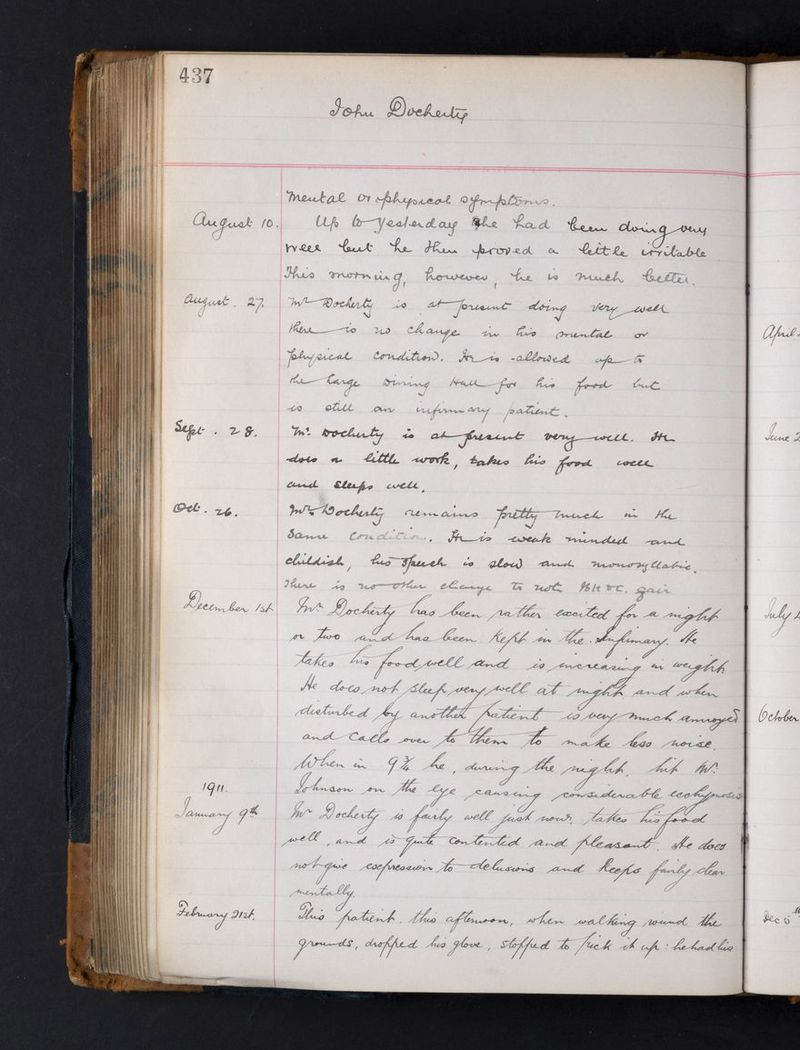 437
John Docherty
mental or physical symptoms.
August 10. Up to yesterday he had been doing very
well but he then proved a little irritable
This morning, however, he is much better.
August. 27. Mr Docherty is at present doing very well
there is no change in his mental or
physical condition. He is allowed up to
the Large Dining Hall for his food but
is still an infirmary patient.
Sept. 28. Mr. Docherty is at present very well. He
does a little work, takes his food well
and sleeps well.
Oct. 26. Mr Docherty remains pretty much in the
same condition. He is weak minded and
childish, his speech is slow and monosyllabic.
There is no other change to note
December 1st Mr Docherty has been rather excited for a night
or two and has been kept in the Infirmary. He
takes his food well and is increasing in weight.
He does not sleep very well at night and when
disturbed by another patient is very much annoyed
and calls over to them to make less noise.
When in 9¾ he, during the night, hit Mr.
1911. Johnson on the eye causing considerable ecchymosis
January 9th Mr Docherty is fairly well just now, takes his food
well, and is quite contented and pleasant. He does
not give expression to delusions and keeps fairly clear
mentally.
February 21st. This patient this afternoon, when walking round the
grounds, dropped his glove, stopped to pick it up: he had his
April
June 2
July
October
Dec 5th